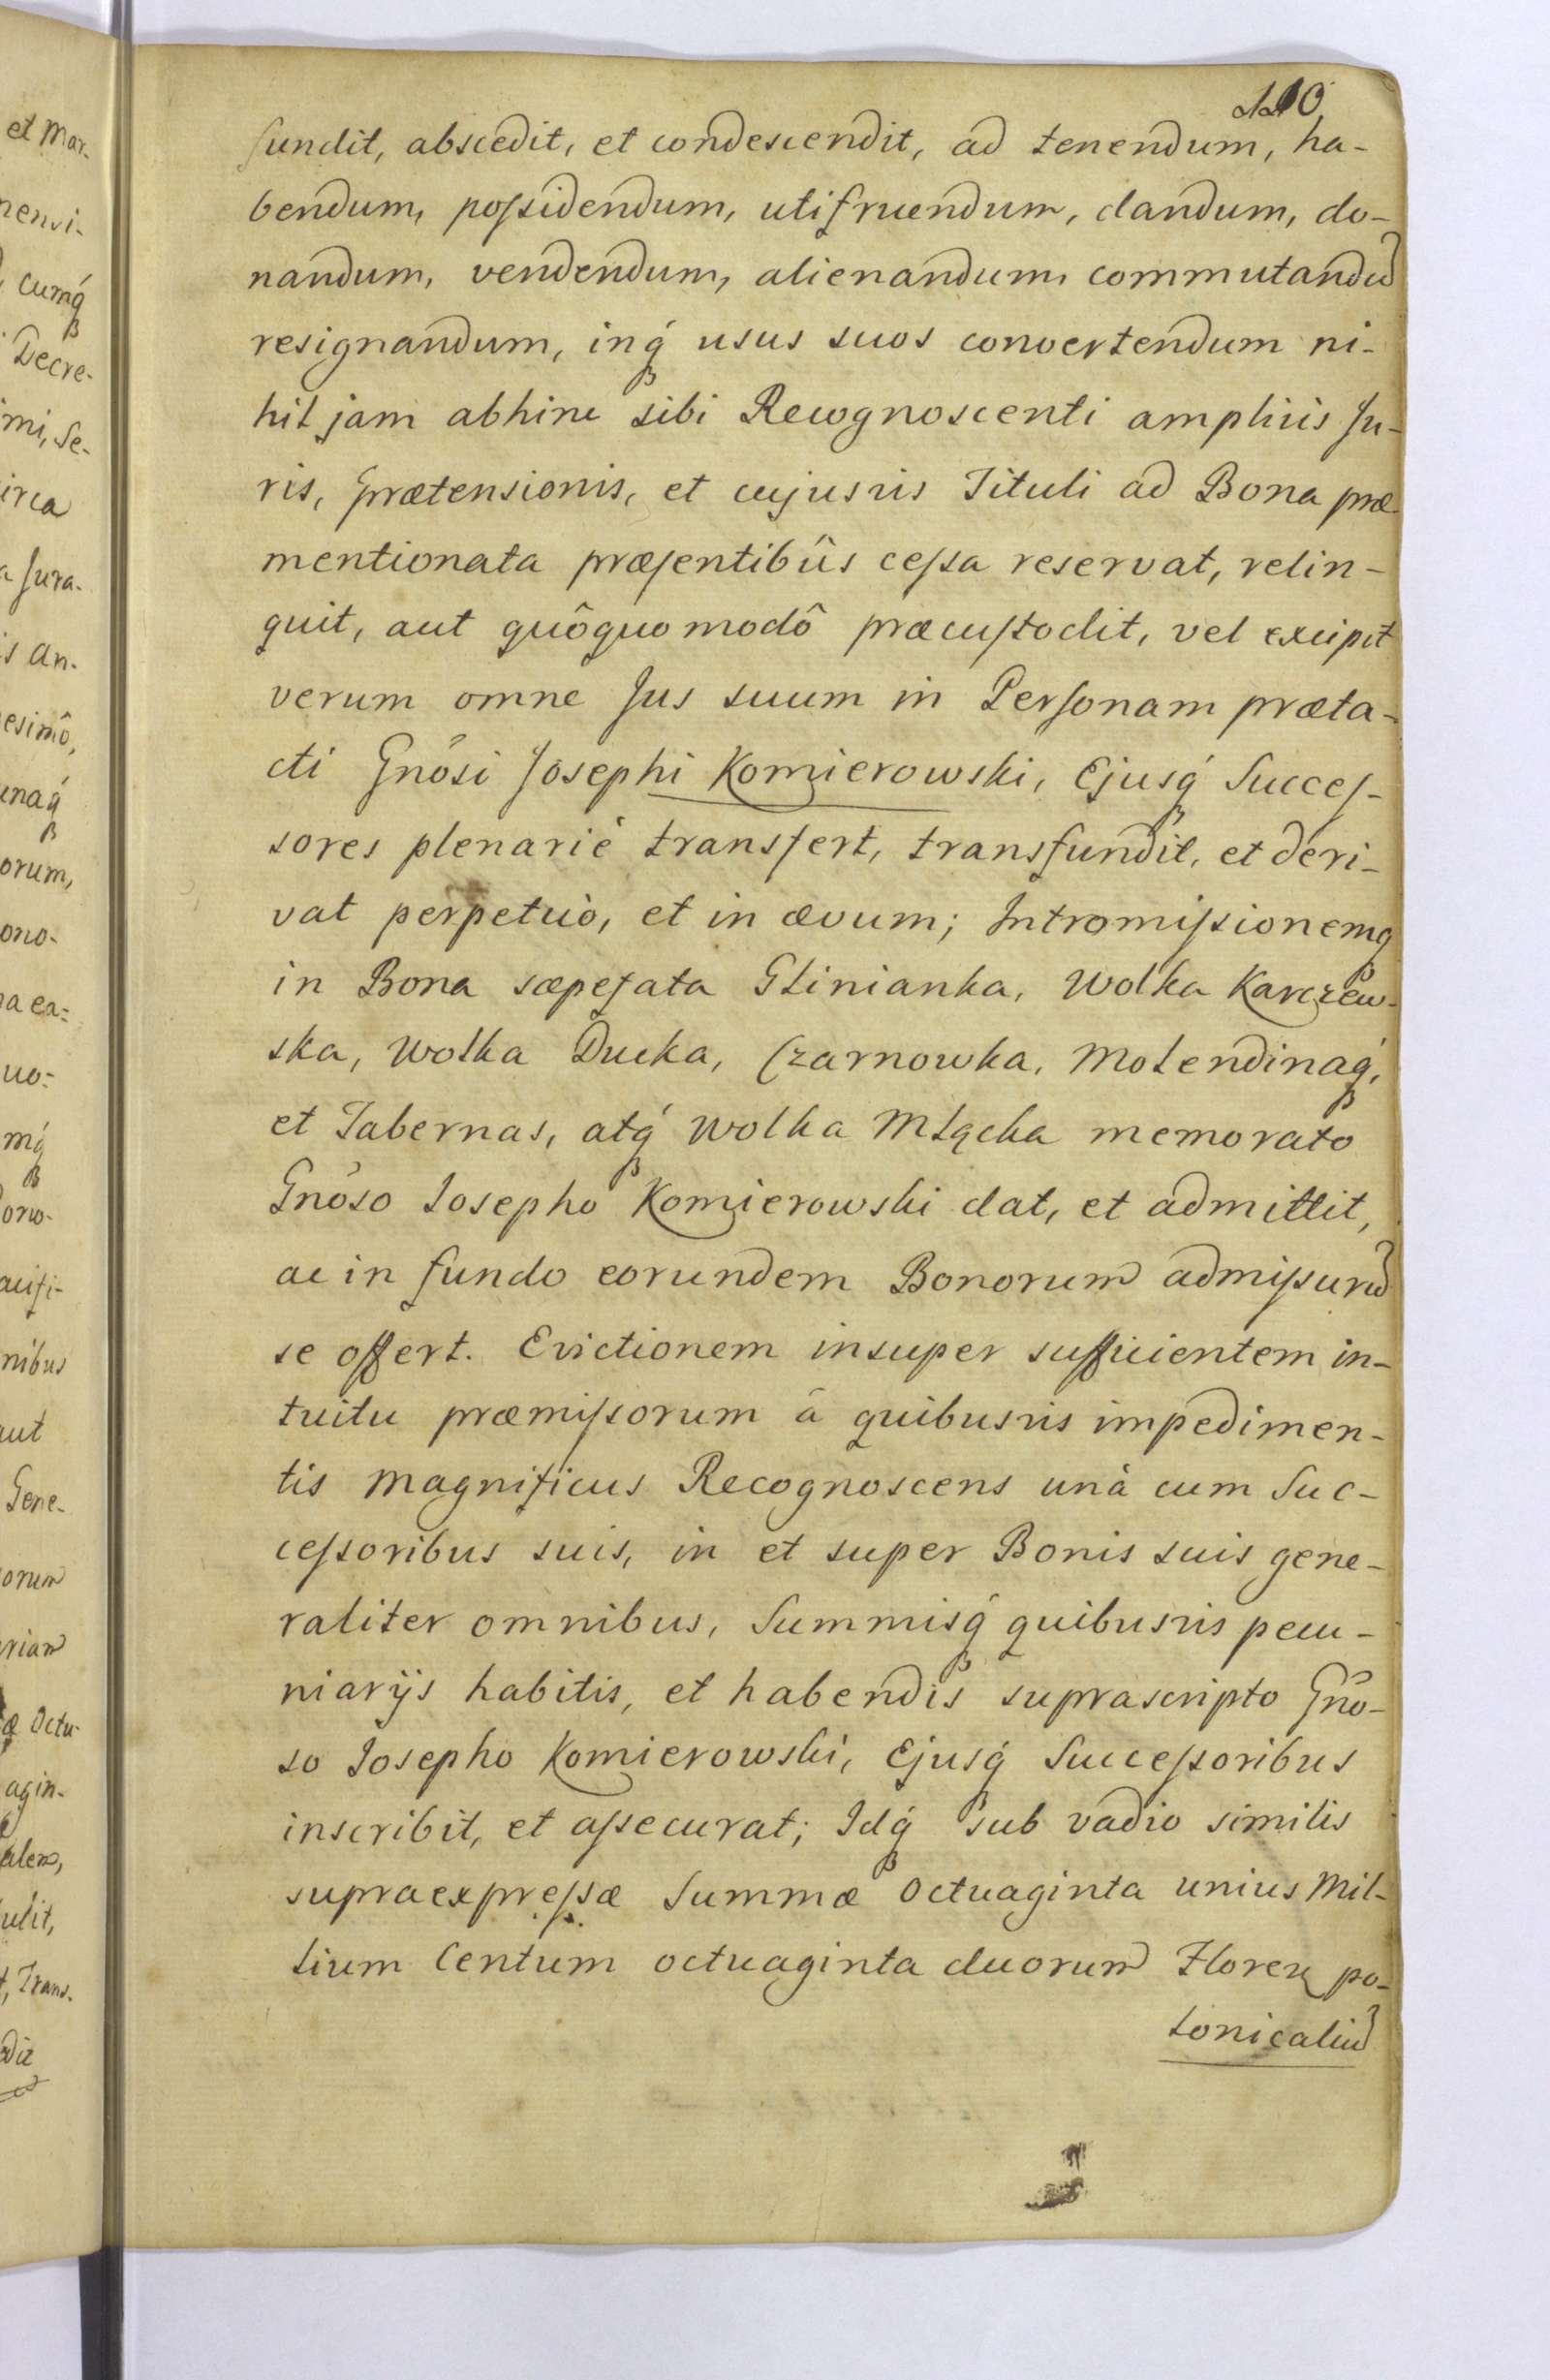 fundit, abscedit, et condescendit, ad tenendum, ha-
bendum, poſsidendum, utifruendum, dandum, do-
nandum, vendendum, alienandum, commutandū
resignandum, inq́ʒ usus suos convertendum ni-
hil jam abhinc sibi Recognoscenti ampliùs Ju-
ris, Prætensionis, et cujusvis Tituli ad Bona præ-
mentionata præſentibûs ceſsa reservat, relin-
quit, aut quôquomodô præcuſtodit, vel excipit
verum omne Jus suum in Perſonam præta-
cti Gnõsi Josephi Komierowski, Ejusq́ʒ Succeſ-
sores plenariè transfert, transfundit, et deri-
vat perpetuò, et in ævum; Intromiſsionemqʒ
in Bona sæpefata Glinianka, Wolka Karczew-
ska, Wolka Ducka, Czarnowka, Molendinaq́ʒ,
et Tabernas, atq́ʒ Wolka Młącka memorato
Gnõso Josepho Komierowski dat, et admittit,
ac in fundo eorundem Bonorum admiſsurū
se offert. Evictionem insuper sufficientem in-
tuitu præmiſsorum â quibusvis impedimen-
tis Magnificus Recognoscens unà cum Suc-
ceſsoribus suis, in et super Bonis suis gene-
raliter omnibus, Summisq́ʒ quibusvis pecu-
niarijs habitis, et habendis suprascripto Gnõ-
so Josepho Komierowski, Ejusq́ʒ Succeſsoribus
inscribit, et aſsecurat; Idq́ʒ sub vadio similis
supraexpreſsæ Summæ Octuaginta unius Mil-
lium Centum octuaginta duorum Floren po-
lonicaliū